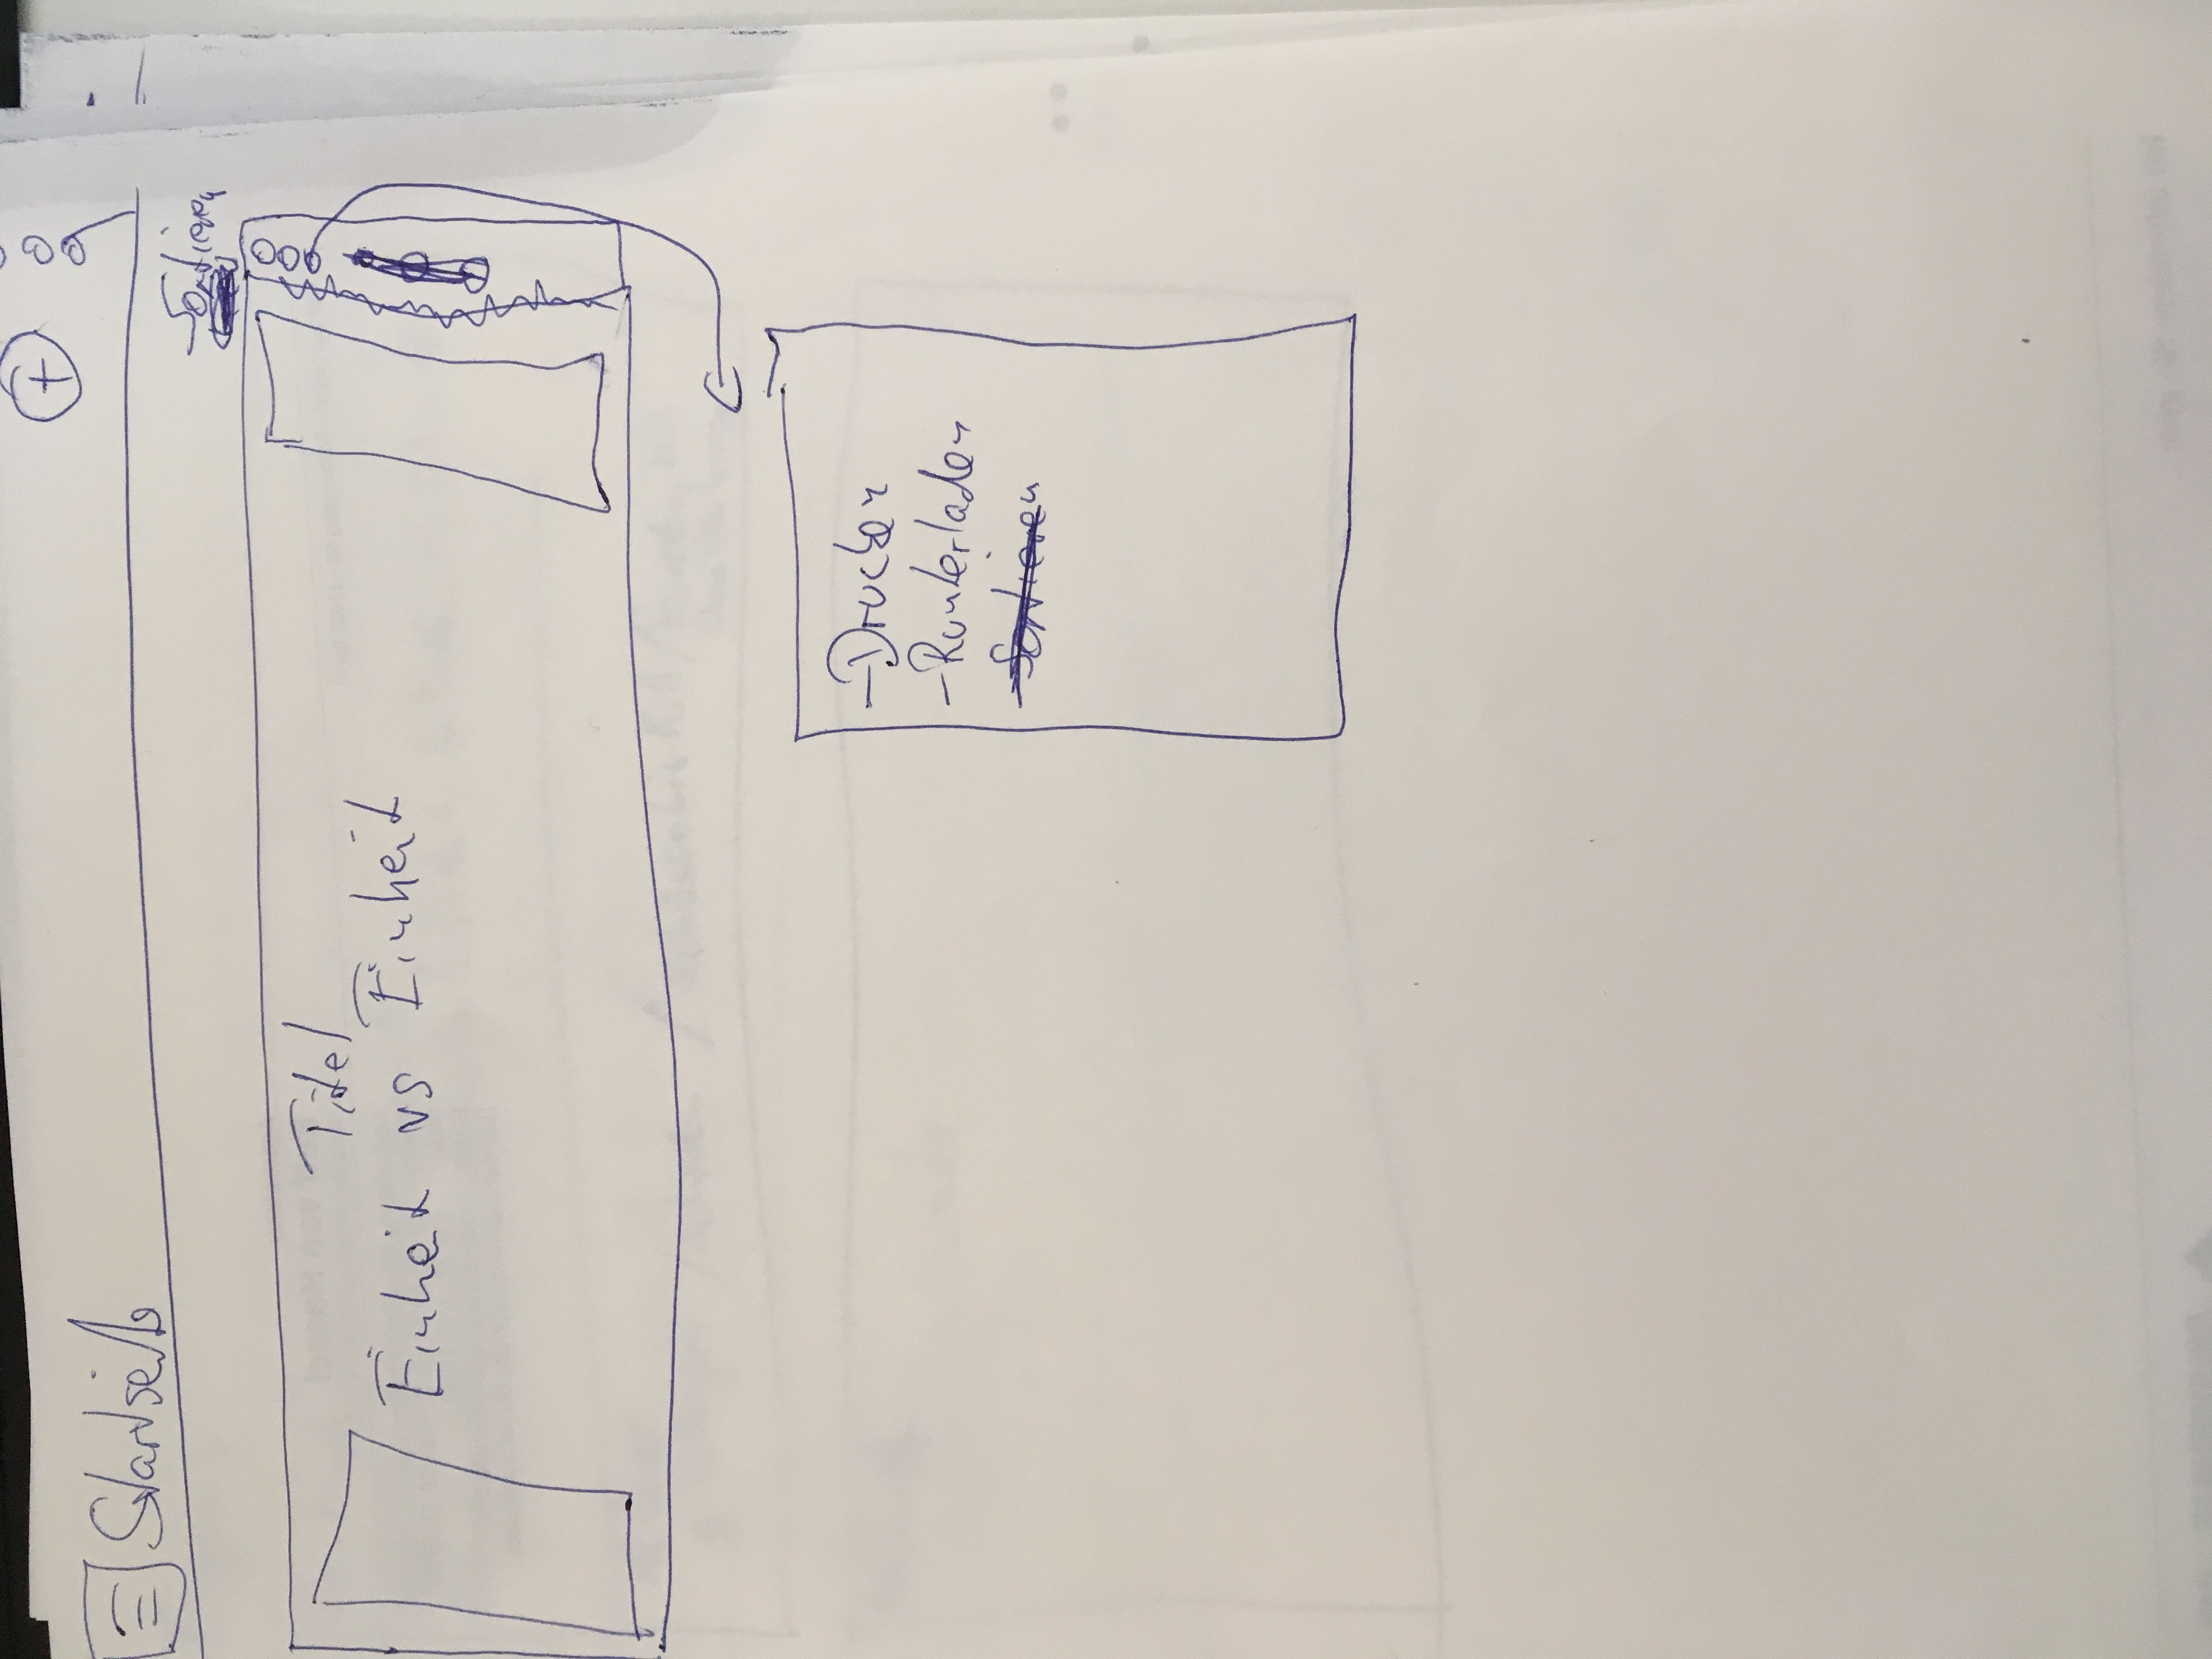 Startseite
+
- Sortieren
Titel
Einheit vs Einheit
- Drucken
- Runterladen
- Sortieren